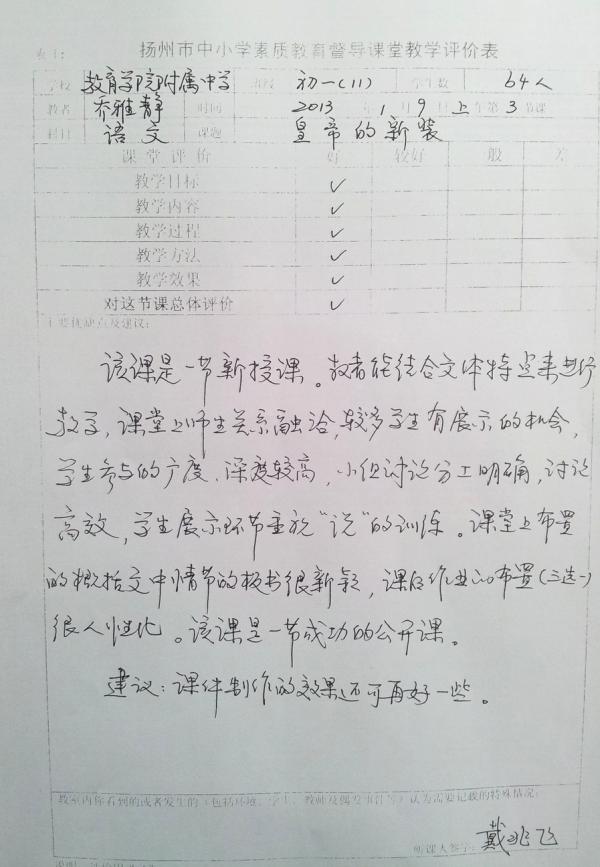 表1: 扬州市中小学素质教育督导课堂教学评价表
学校 教育学院附属中学 班级 初一(11) 学生数 64人
教者 乔雅静 时间 2013年1月9日上午第3节课
科目 语文 课题 皇帝的新装
课堂评价 好 较好 一般 差
教学目标 ✓
教学内容 ✓
教学过程 ✓
教学方法 ✓
教学效果 ✓
对这节课总体评价 ✓
主要优缺点及建议:
该课是一节新授课。教者能结合文体特点来进行
教学,课堂上师生关系融洽,较多学生有展示的机会,
学生参与的广度、深度较高,小组讨论分工明确,讨论
高效,学生展示环节重视“说”的训练。课堂上布置
的概括文中情节的板书很新颖,课后作业的布置(三选一)
很人性化。该课是一节成功的公开课。
建议:课件制作的效果还可再好一些。
教室内你看到的或者发生的(包括环境、学生、教师及偶发事件等)认为需要记载的特殊情况:
听课人签字: 戴兆飞